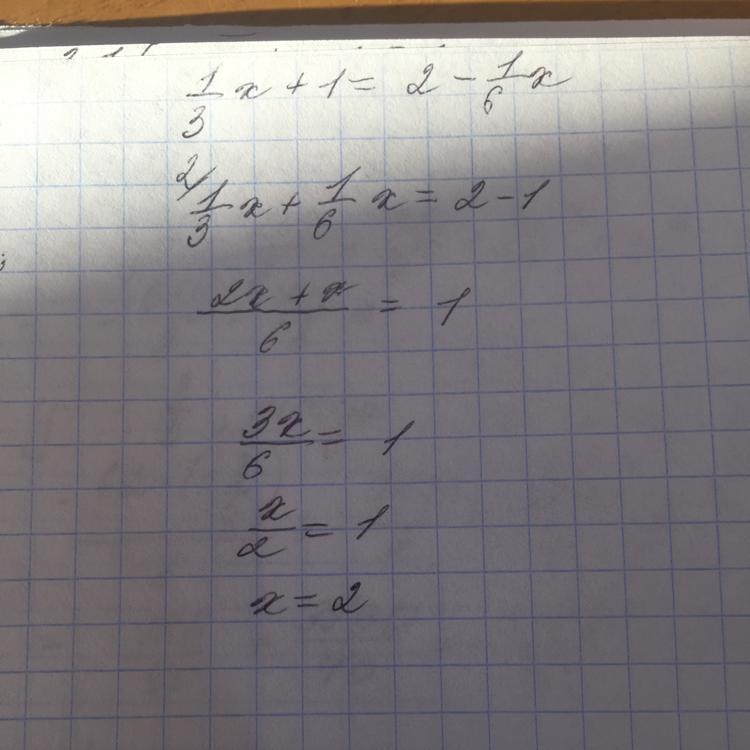 1/3 x + 1 = 2 - 1/6 x
2/ 1/3 x + 1/6 x = 2 - 1
2x + x / 6 = 1
3x/6 = 1
x/2 = 1
x = 2